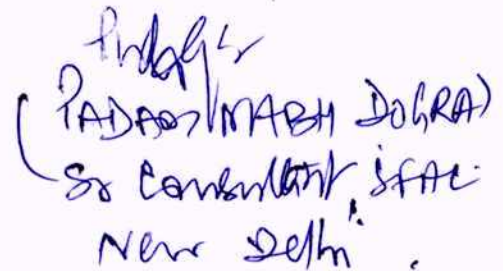 (PADAM NABH DOGRA)
Sr Consultant, SFAC
New Delhi.